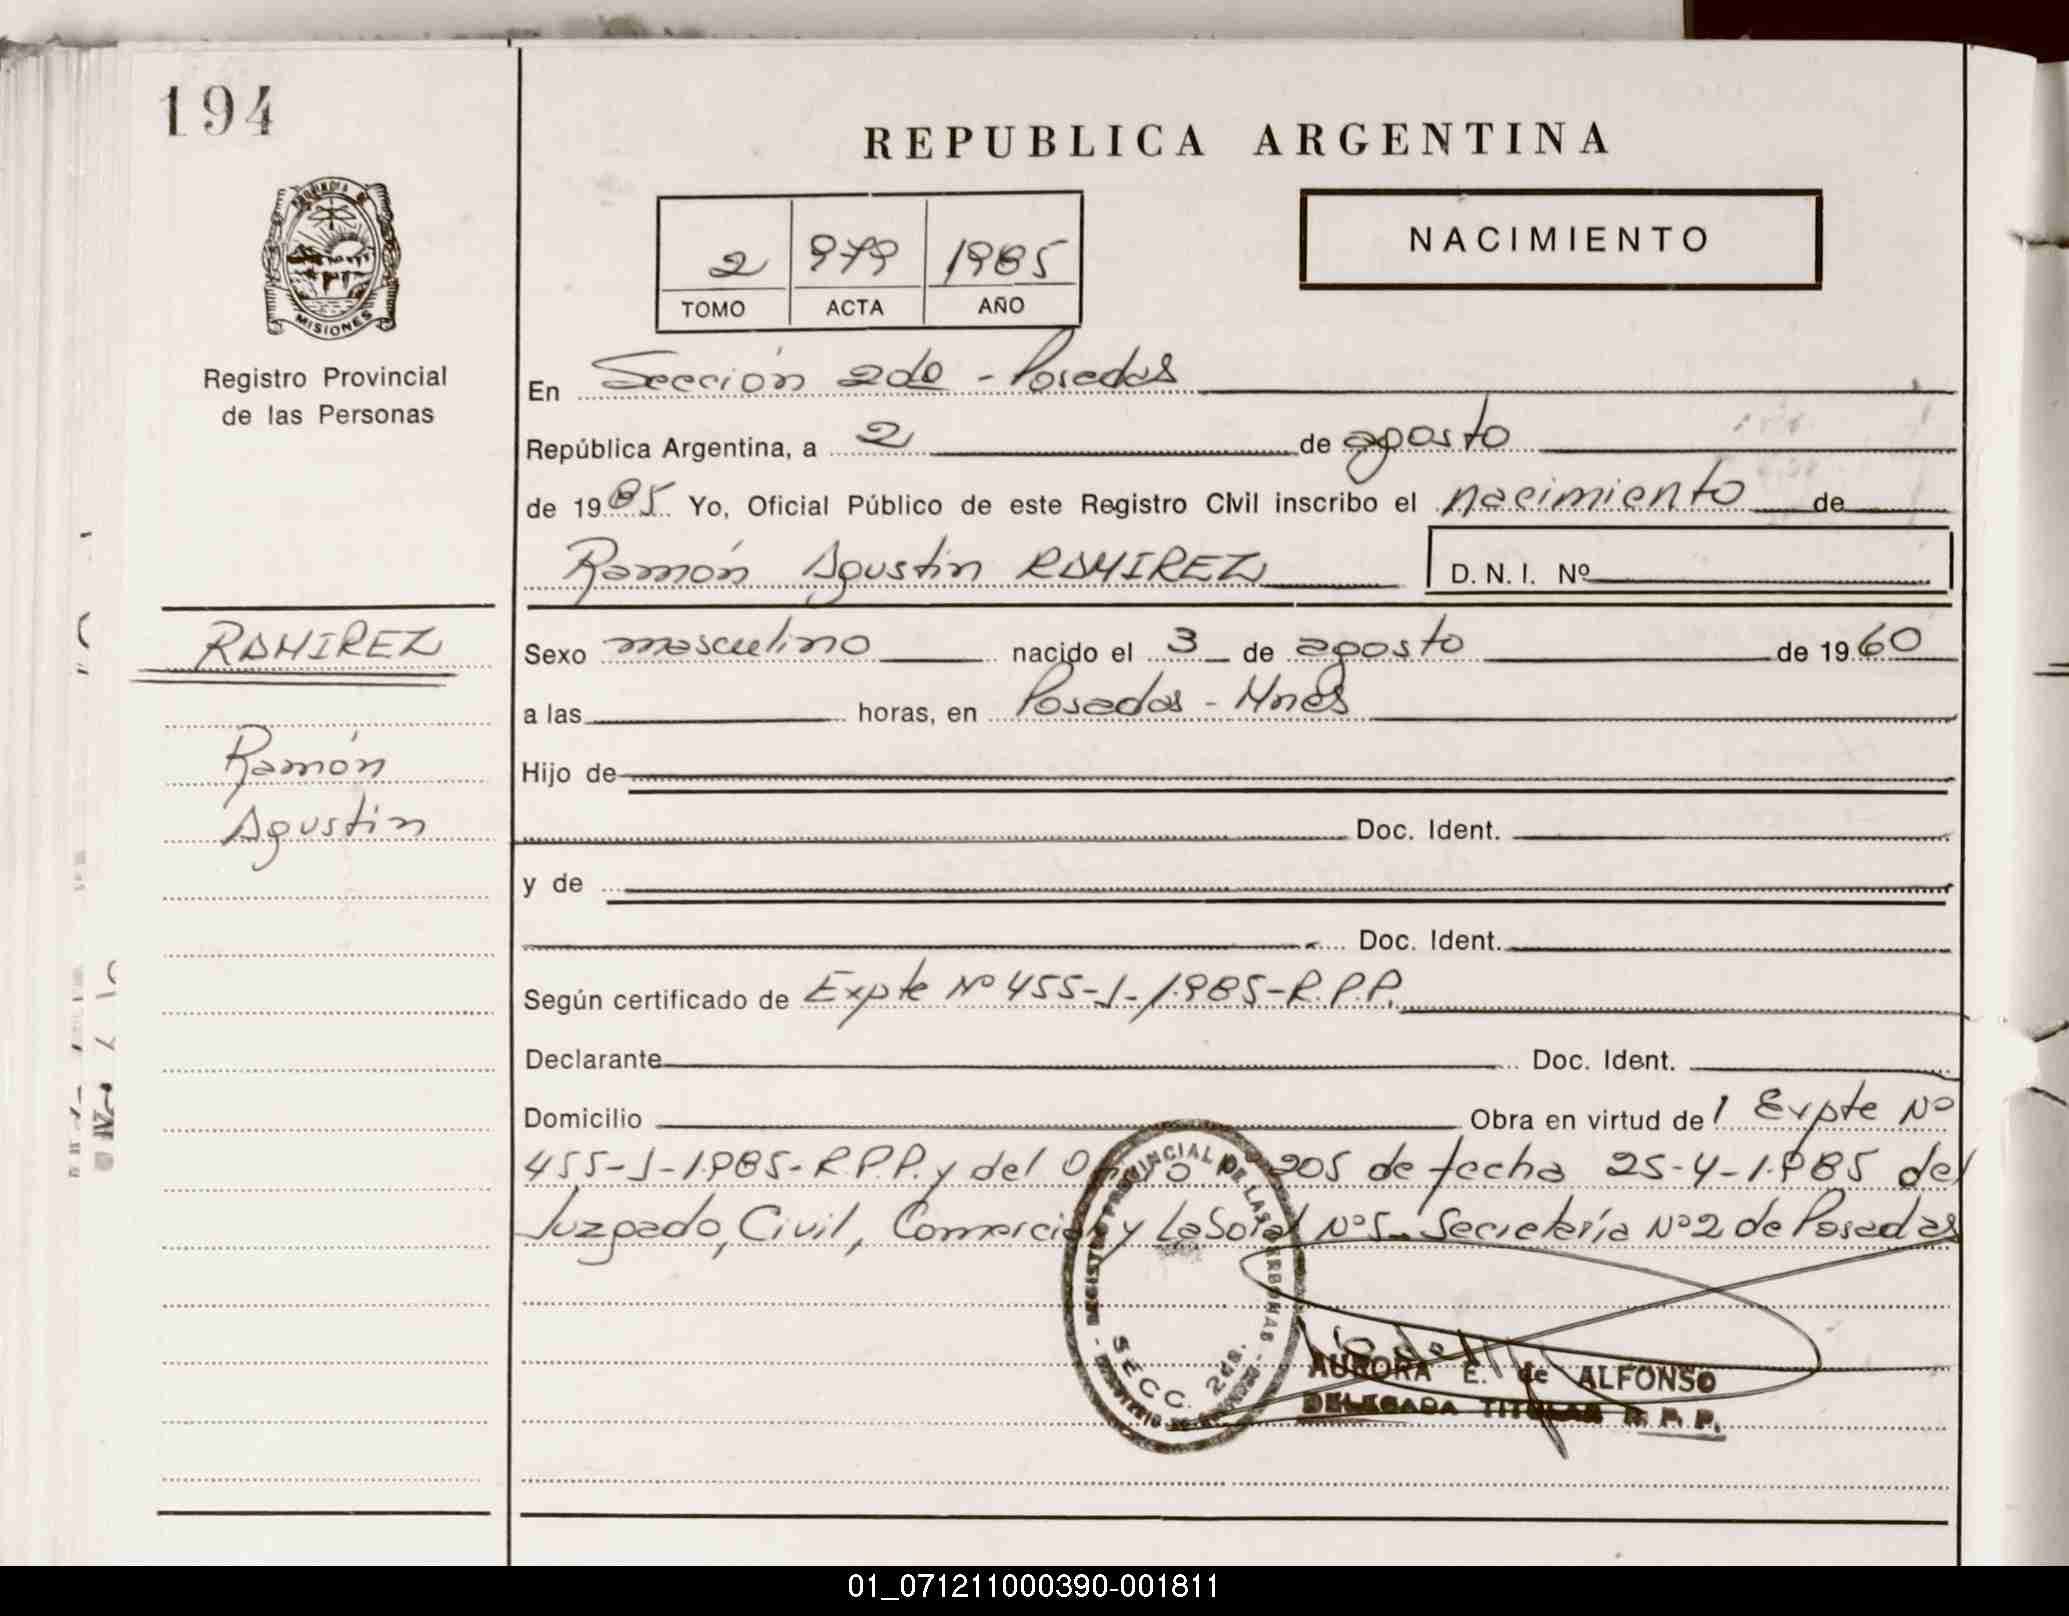 194
REPUBLICA ARGENTINA
PROVINCIA DE
MISIONES
Registro Provincial
de las Personas
2 979 1985
TOMO ACTA AÑO
NACIMIENTO
En Sección 2da - Posadas
República Argentina, a 2 de agosto
de 1985 Yo, Oficial Público de este Registro Civil inscribo el nacimiento de
Ramón Agustin RAMIREZ D. N. I. Nº
RAMIREZ
Ramón
Agustin
Sexo masculino nacido el 3 de agosto de 1960
a las horas, en Posadas - Mnes
Hijo de
Doc. Ident.
y de
Doc. Ident.
Según certificado de Expte Nº 455-J-1985-R.P.P.
Declarante Doc. Ident.
Domicilio Obra en virtud del Expte Nº
455-J-1985-R.P.P. y del 205 de fecha 25-4-1985 del
Juzgado, Civil, Comercial y Laboral Nº5- Secretaría Nº2 de Posadas
REGISTRO PROVINCIAL DE LAS PERSONAS
SECC. 2da.
AURORA E. de ALFONSO
DELEGADA TITULAR R. P. P.
01_071211000390-001811